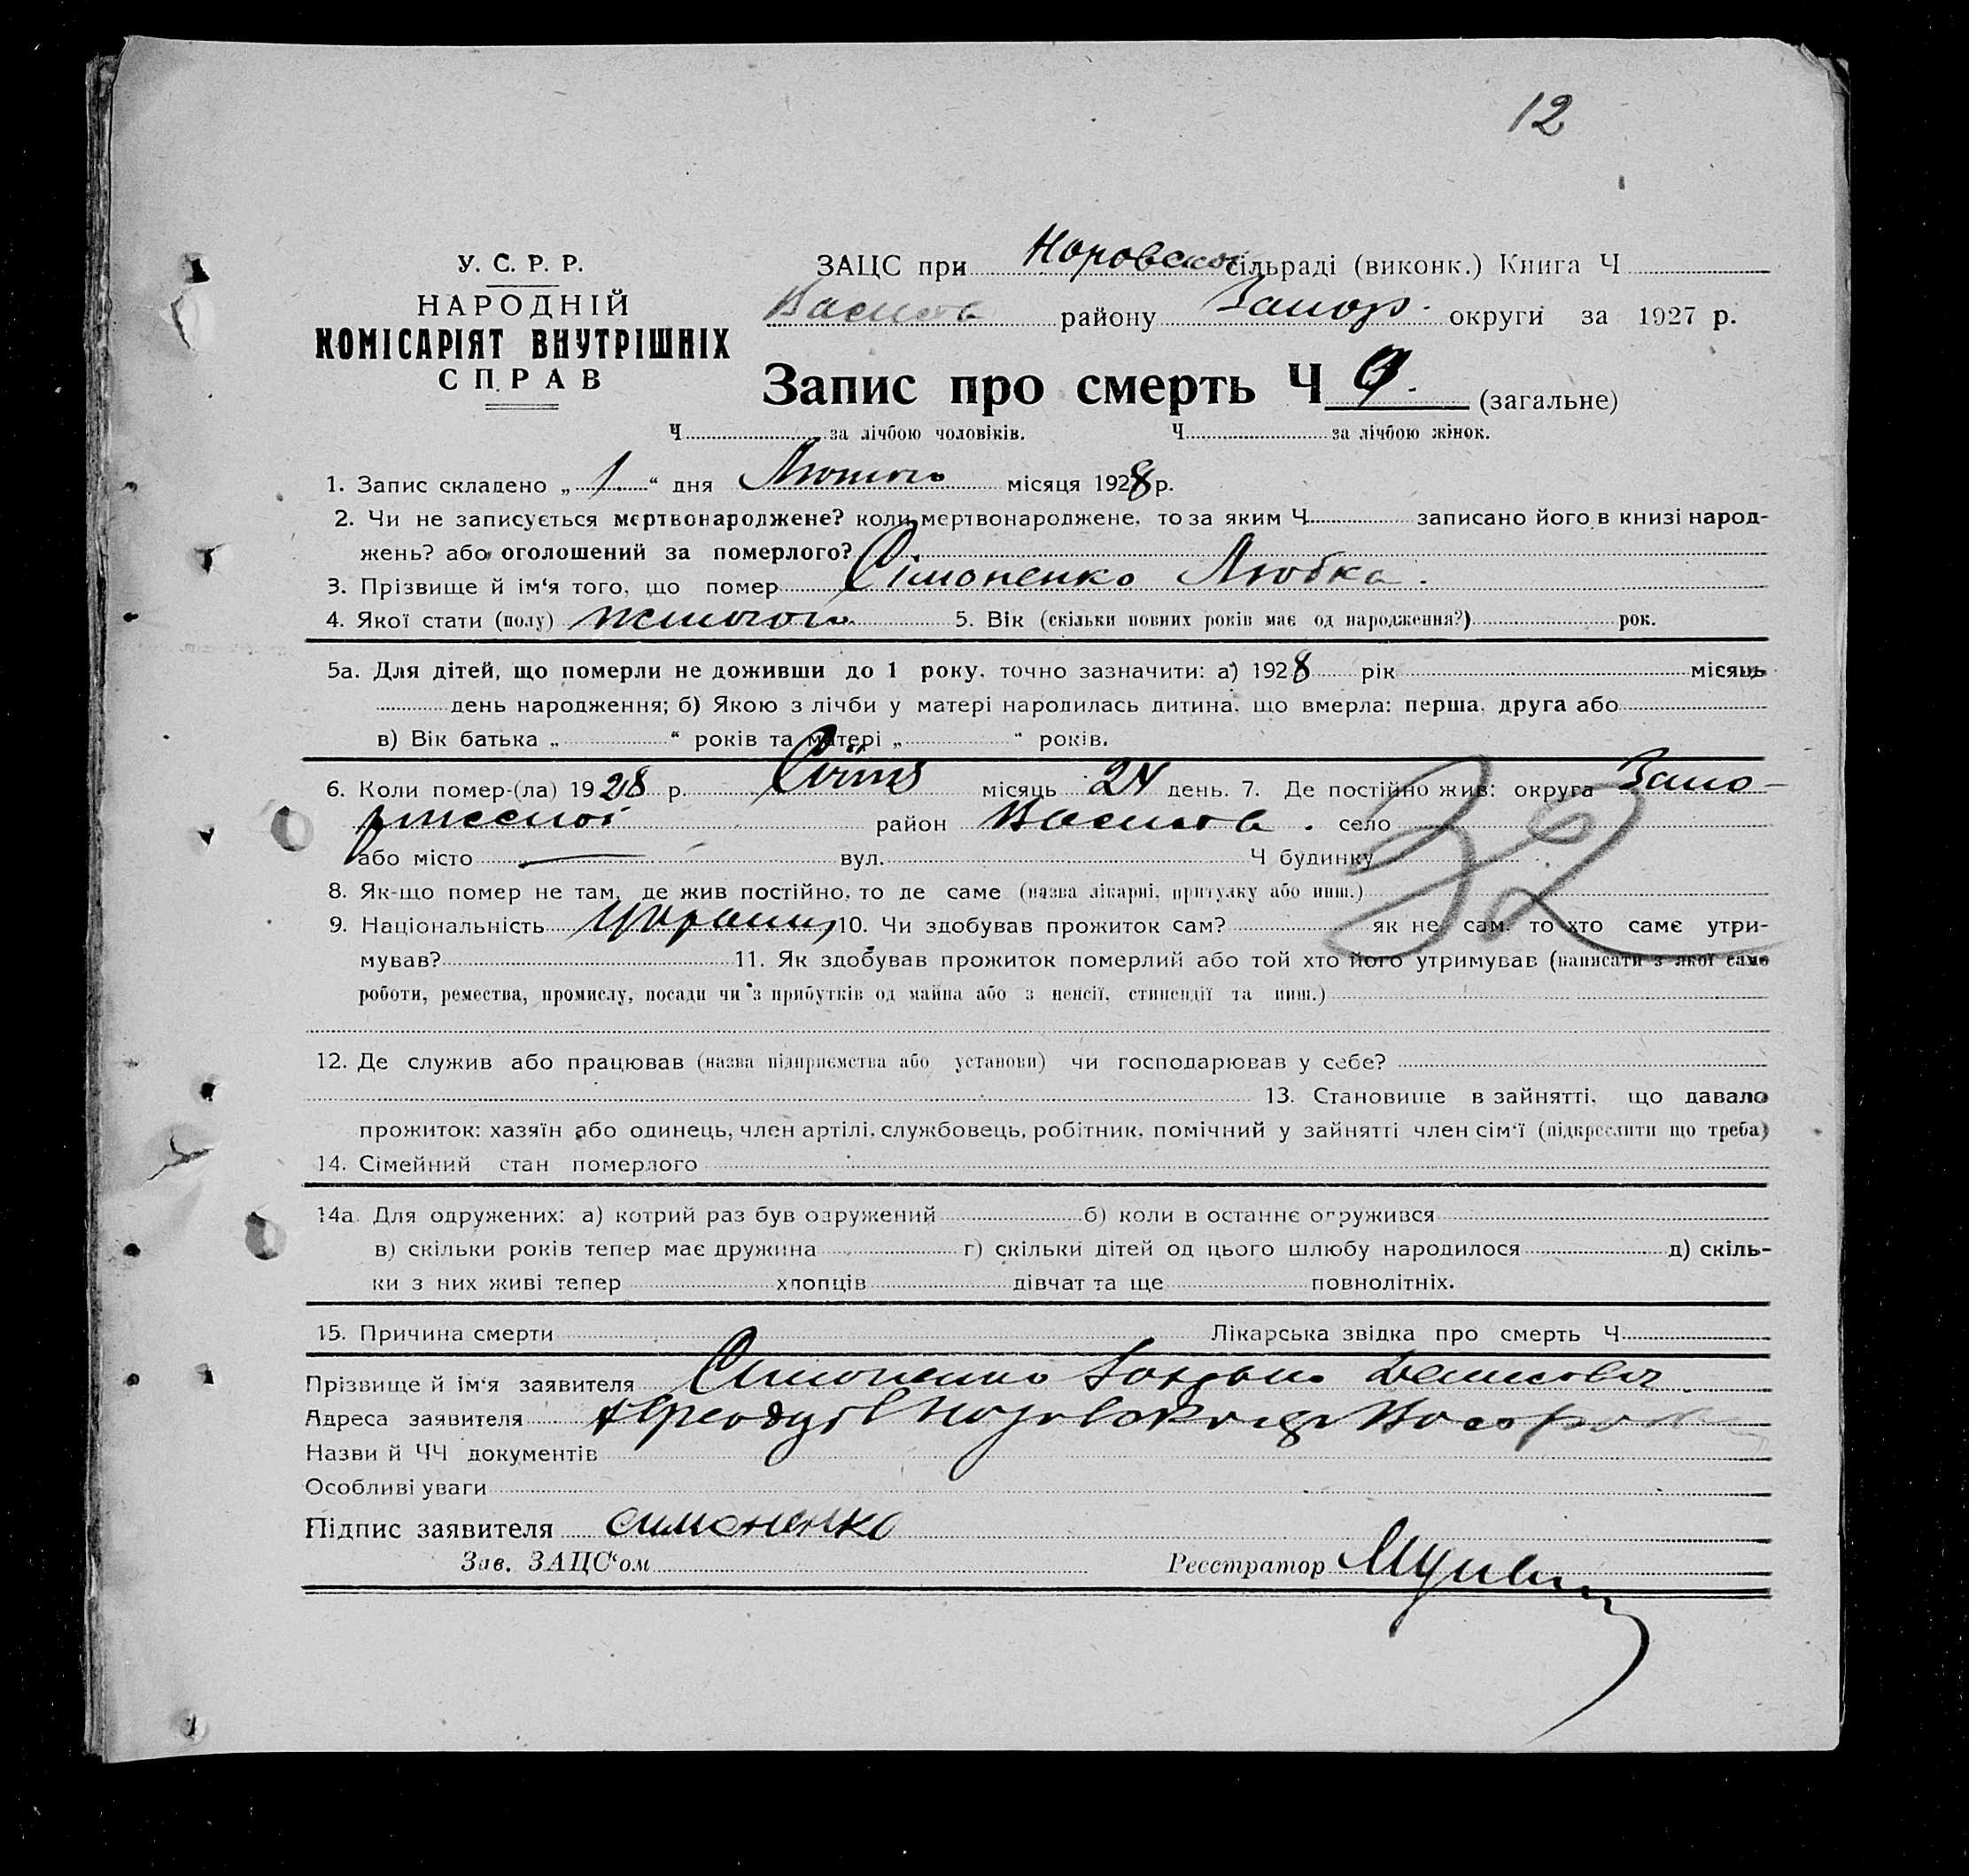 12
У. С. Р. Р.
НАРОДНІЙ
КОМІСАРІЯТ ВНУТРІШНІХ
СПРАВ
ЗАЦС при сільраді (виконк.) Книга Ч
району Запор. округи за 1927 р.
Запис про смерть Ч 9. (загальне)
Ч за лічбою чоловіків. Ч за лічбою жінок.
1. Запис складено „ 1. “ дня Лютого місяця 1928 р.
2. Чи не записується мертвонароджене? коли мертвонароджене, то за яким Ч записано його в книзі народ-
жень? або оголошений за померлого?
3. Прізвище й ім‘я того, що помер Сімоненко Любка.
4. Якої стати (полу) жіночої 5. Вік (скільки повних років має од народження?) рок.
5а. Для дітей, що померли не доживши до 1 року, точно зазначити: а) 1928 рік місяць
день народження; б) Якою з лічби у матері народилась дитина, що вмерла: перша, друга або
в) Вік батька „ “ років та матері „ “ років.
6. Коли помер-(ла) 1928 р. Січня місяць 24 день. 7. Де постійно жив: округа Запо-
ріжської район село
або місто — вул. Ч будинку
32
8. Як-що помер не там, де жив постійно, то де саме (назва лікарні, притулку або инш.)
9. Національність Україн, 10. Чи здобував прожиток сам? як не сам, то хто саме утри-
мував? 11. Як здобував прожиток померлий або той хто його утримував (написати з якої саме
роботи, ремества, промислу, посади чи з прибутків од майна або з пенсії, стипендії та инш.)
12. Де служив або працював (назва підприємства або установи) чи господарював у себе?
13. Становище в зайнятті, що давало
прожиток: хазяїн або одинець, член артілі, службовець, робітник, помічний у зайнятті член сім‘ї (підкреслити що треба)
14. Сімейний стан померлого
14а. Для одружених: а) котрий раз був одружений б) коли в останнє одружився
в) скільки років тепер має дружина г) скільки дітей од цього шлюбу народилося д) скіль-
ки з них живі тепер хлопців дівчат та ще повнолітніх.
15. Причина смерти Лікарська звідка про смерть Ч
Прізвище й ім‘я заявителя Симоненко
Адреса заявителя
Назви й ЧЧ документів
Особливі уваги
Підпис заявителя симоненко
Зав. ЗАЦС‘ом Реєстратор